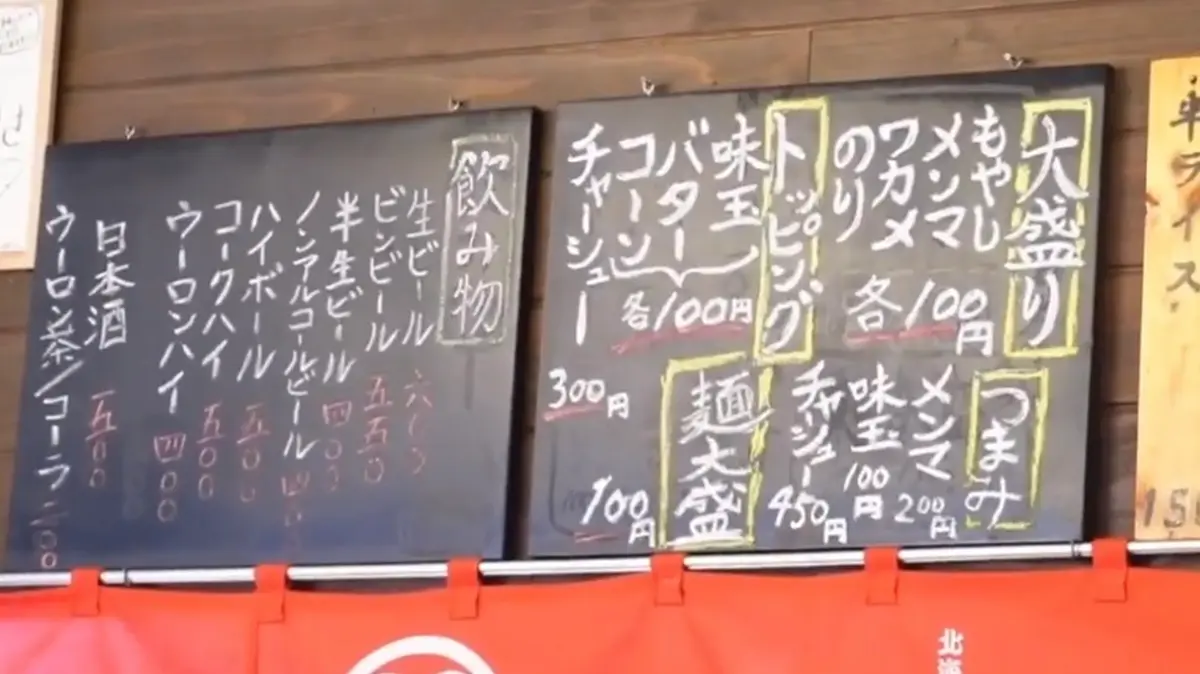 大盛り
もやし
メンマ
ワカメ
のり
各100円
トッピング
味玉
バター
コーン
各100円
チャーシュー
300円
つまみ
メンマ
200円
味玉
100円
チャーシュー
450円
麺大盛
100円
飲み物
生ビール 六〇〇
ビンビール 五五〇
半生ビール 四〇〇
ノンアルコールビール 四〇
ハイボール 五〇〇
コークハイ 五〇〇
ウーロンハイ 四〇〇
日本酒 五〇〇
ウーロン茶/コーラ 二〇〇
半ライス
150
北海